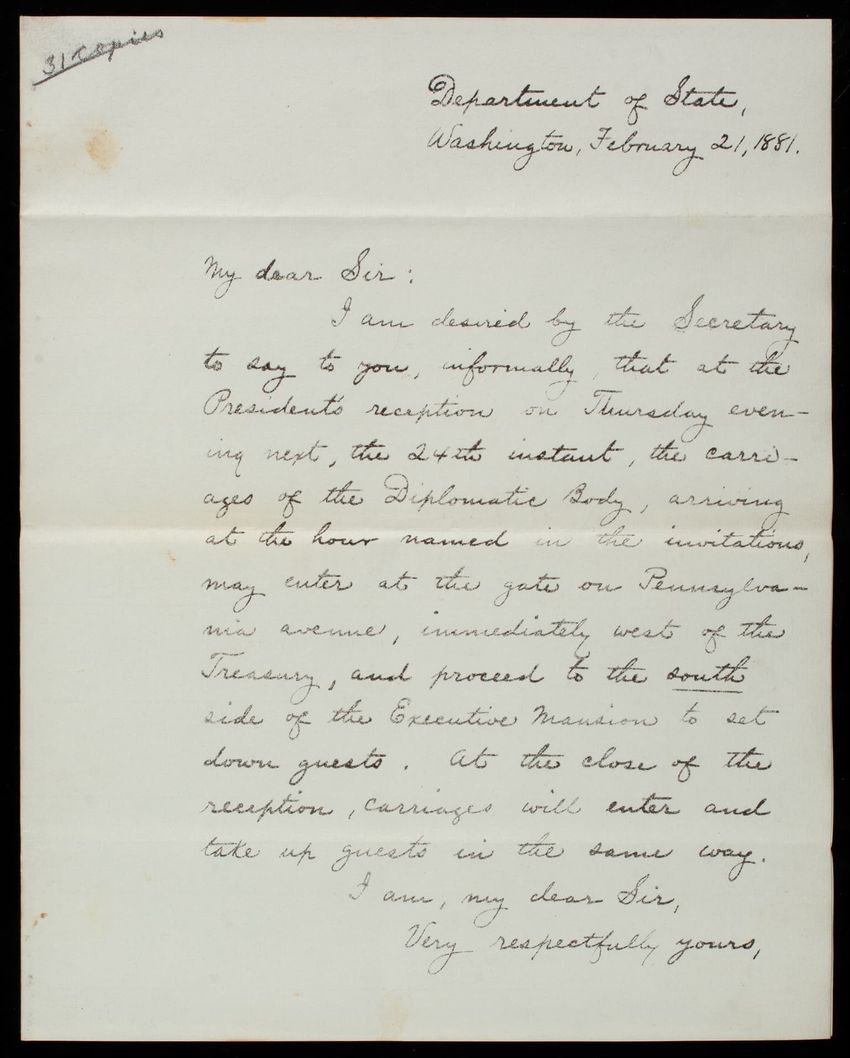 31 Copies
Department of State,
Washington, February 21, 1881.
My dear Sir:
I am desired by the Secretary
to say to you, informally, that at the
President's reception on Thursday even-
ing next, the 24th instant, the carri-
ages of the Diplomatic Body, arriving
at the hour named in the invitations,
may enter at the gate on Pennsylva-
nia avenue, immediately west of the
Treasury, and proceed to the south
side of the Executive Mansion to set
down guests. At the close of the
reception, carriages will enter and
take up guests in the same way.
I am, my dear Sir,
Very respectfully yours,